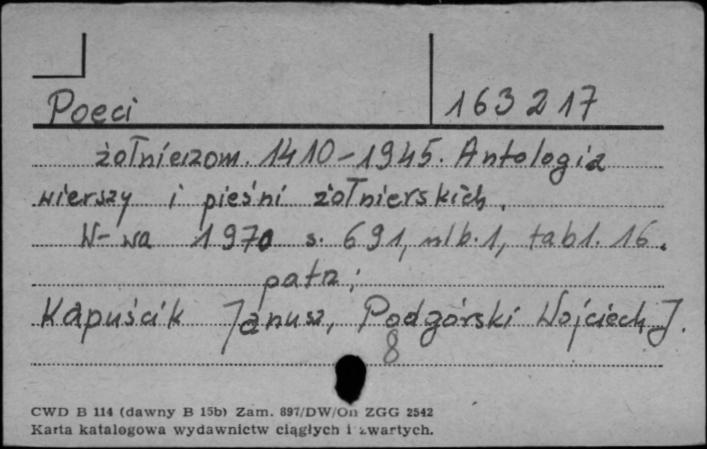 Poeci 163 217
żołnierzom. 1410-1945. Antologia
wierszy i pieśni żołnierskich.
W-wa 1970 s. 691, nlb. 1, tabl. 16.
patrz:
Kapuścik Janusz, Podgórski Wojciech J.
8
CWD B 114 (dawny B 15b) Zam. 897/DW/On ZGG 2542
Karta katalogowa wydawnictw ciągłych i zwartych.